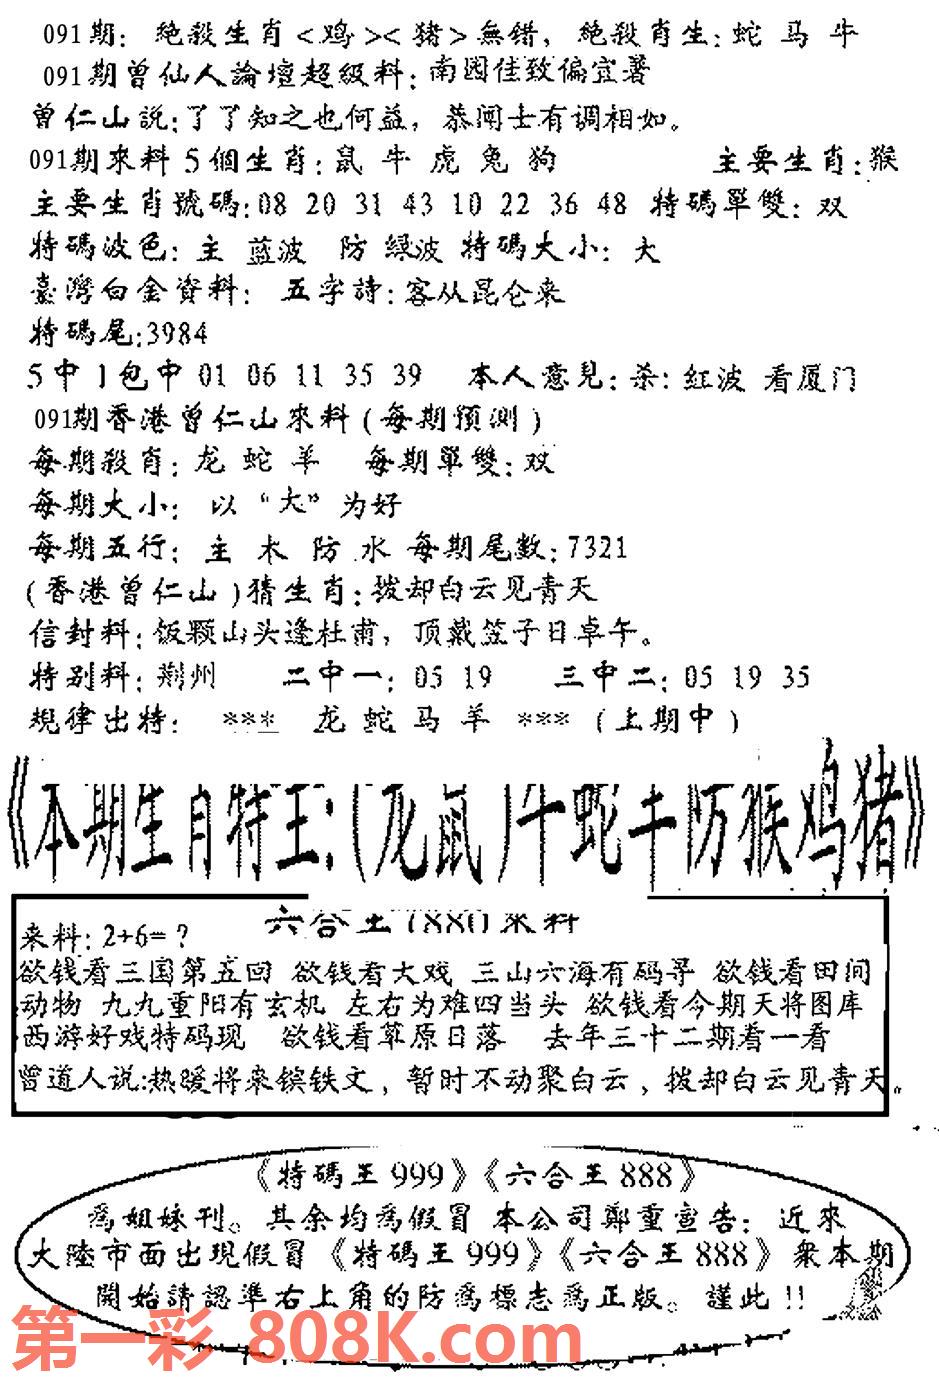 091期：絶殺生肖<鸡><猪>無錯，絶殺肖生：蛇 马 牛
091期曾仙人論壇超級料：南园佳致偏宜暑
曾仁山說：了了知之也何益，恭闻士有调相如。
091期來料 5個生肖：鼠 牛 虎 兔 狗 主要生肖：猴
主要生肖號碼：08 20 31 43 10 22 36 48 特碼單雙：双
特碼波色：主 蓝波 防 绿波 特碼大小：大
臺灣白金資料： 五字詩：客从昆仑来
特碼尾：3984
5中1包中 01 06 11 35 39 本人意見：杀：红波 看厦门
091期香港曾仁山來料(每期預測)
每期殺肖：龙 蛇 羊 每期單雙：双
每期大小：以“大”为好
每期五行：主 木 防 水 每期尾數：7321
(香港曾仁山)猜生肖：拨却白云见青天
信封料：饭颗山头逢杜甫，顶戴笠子日卓午。
特别料：荆州 二中一：05 19 三中二：05 19 35
規律出特： *** 龙 蛇 马 羊 ***(上期中)
《本期生肖特王：(龙鼠)牛蛇羊防猴鸡猪》
六合王1880來料
来料：2+6=？
欲钱看三国第五回 欲钱看大戏 三山六海有码寻 欲钱看田间
动物 九九重阳有玄机 左右为难四当头 欲钱看今期天将图库
西游好戏特码现 欲钱看草原日落 去年三十二期看一看
曾道人说：热暖将来镔铁文，暂时不动聚白云，拨却白云见青天。
《特碼王999》《六合王888》
為姐妹刊。其余均為假冒 本公司鄭重宣告：近來
大陸市面出現假冒《特碼王999》《六合王888》衆本期
開始請認準右上角的防為標志為正版。謹此!!
第一彩 808K.com